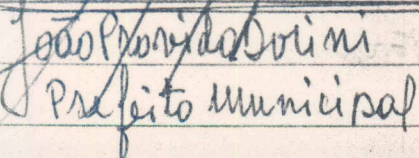 João Provido Dorini
Prefeito Municipal